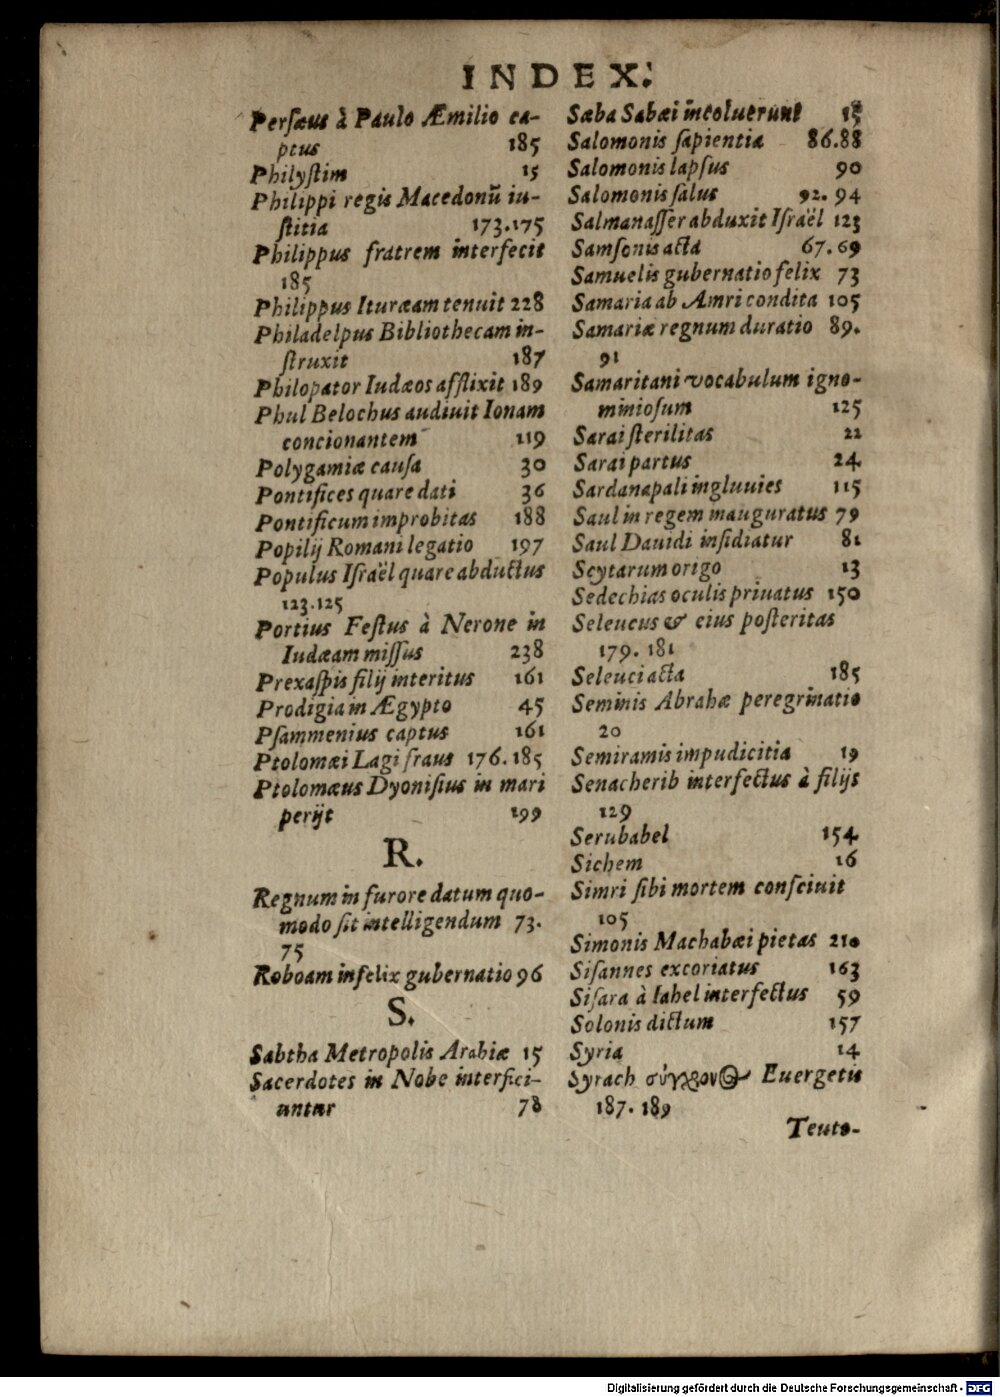 INDEX.
Persæus à Paulo Æmilio ca-
ptus 185
Philyſtim 15
Philippi regis Macedonũ iu-
ſtitia 173.175
Philippus fratrem interfecit
185
Philippus Ituræam tenuit 228
Philadelpus Bibliothecam in-
ſtruxit 187
Philopator Iudæos afflixit 189
Phul Belochus audiuit Ionam
concionantem 119
Polygamiæ cauſa 30
Pontifices quare dati 36
Pontificum improbitas 188
Popilij Romani legatio 197
Populus Iſraël quare abductus
123.125
Portius Feſtus à Nerone in
Iudæam miſſus 238
Prexaſpis filij interitus 161
Prodigia in Ægypto 45
Pſammenius captus 161
Ptolomæi Lagi fraus 176.185
Ptolomæus Dyoniſius in mari
perijt 199
R.
Regnum in furore datum quo-
modo ſit intelligendum 73.
75
Roboam infelix gubernatio 96
S.
Sabtha Metropolis Arabiæ 15
Sacerdotes in Nobe interfici-
untur 78
Saba Sabæi incoluerunt 15
Salomonis ſapientia 86.88
Salomonis lapſus 90
Salomonis ſalus 92. 94
Salmanaſſer abduxit Iſraël 123
Samſonis acta 67.69
Samuelis gubernatio felix 73
Samaria ab Amri condita 105
Samariæ regnum duratio 89.
91
Samaritani vocabulum igno-
minioſum 125
Sarai ſterilitas 22
Sarai partus 24
Sardanapali ingluuies 115
Saul in regem inauguratus 79
Saul Dauidi inſidiatur 81
Scytarum origo 13
Sedechias oculis priuatus 150
Seleucus & eius poſteritas
179. 181
Seleuci acta 185
Seminis Abrahæ peregrinatio
20
Semiramis impudicitia 19
Senacherib interfectus à filijs
129
Serubabel 154
Sichem 16
Simri ſibi mortem conſciuit
105
Simonis Machabæi pietas 210
Siſannes excoriatus 163
Siſara à Iahel interfectus 59
Solonis dictum 157
Syria 14
Syrach σύγχρονος Euergetis
187. 189
Teuto-
Digitalisierung gefördert durch die Deutsche Forschungsgemeinschaft - DFG